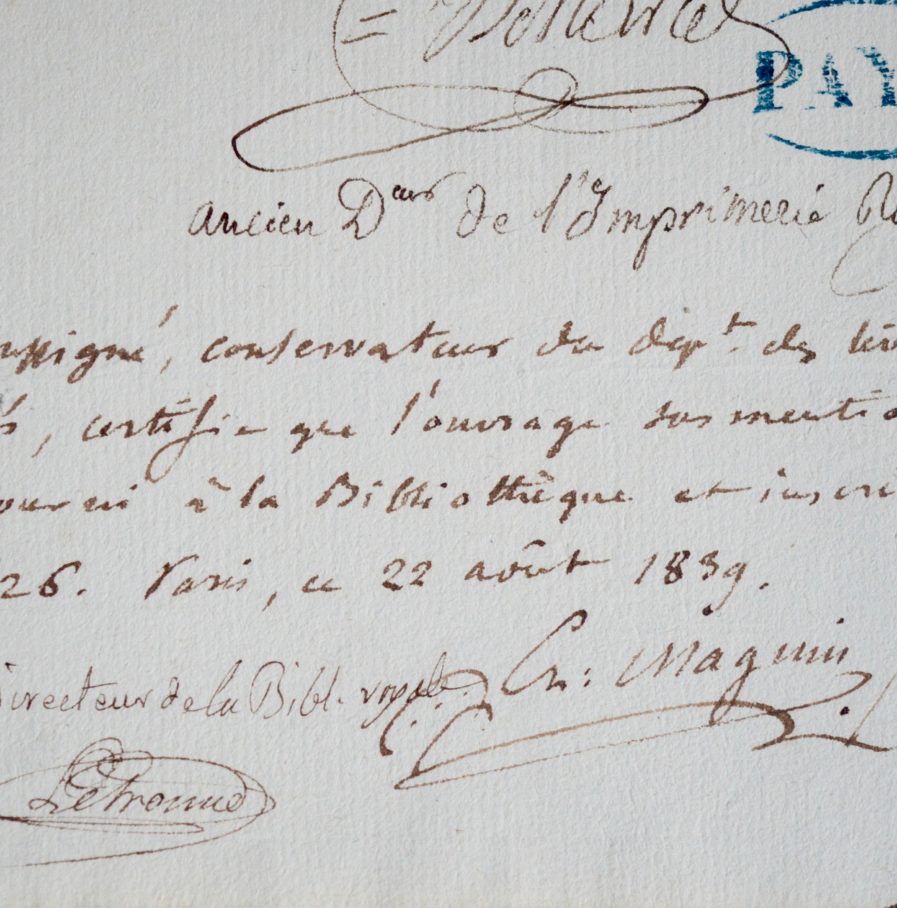 PAY
ancien Deur de l'Imprimerie
conservateur du dépt. des
, certifie que l'ouvrage sus
à la Bibliothèque et
26. Paris, ce 22 août 1839.
Ch: Magnin
directeur de la Bibl. royale
Letronne